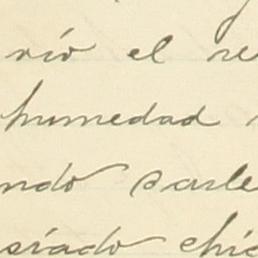 vió el re
humedad
ndo darle
siado chic